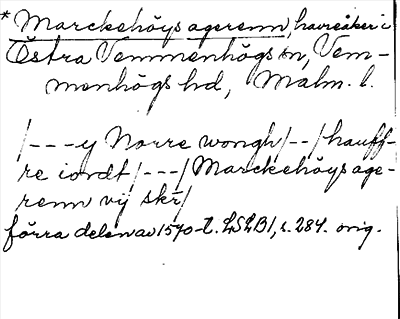 * Marckehöys agerenn, havreåker i
Östra Vemmenhögs sn, Vem-
menhögs hd, Malm. l.
/---y Norre wongh/--/hauff-
re iordt/---/Marckehöys age-
renn vij skr/
förra delen av 1570-t. LSLB1, s. 284. orig.